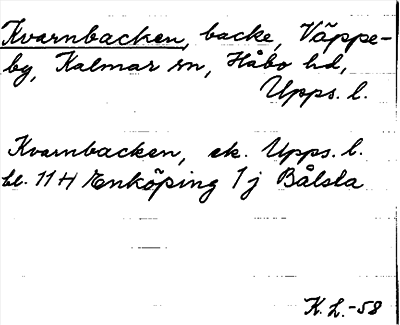 Kvarnbacken, backe, Väppe-
by, Kalmar sn, Håbo hd,
Upps. l.
Kvarnbacken, ek. Upps. l.
bl. 11 H Enköping 1 j Bålsta
K. L. -58